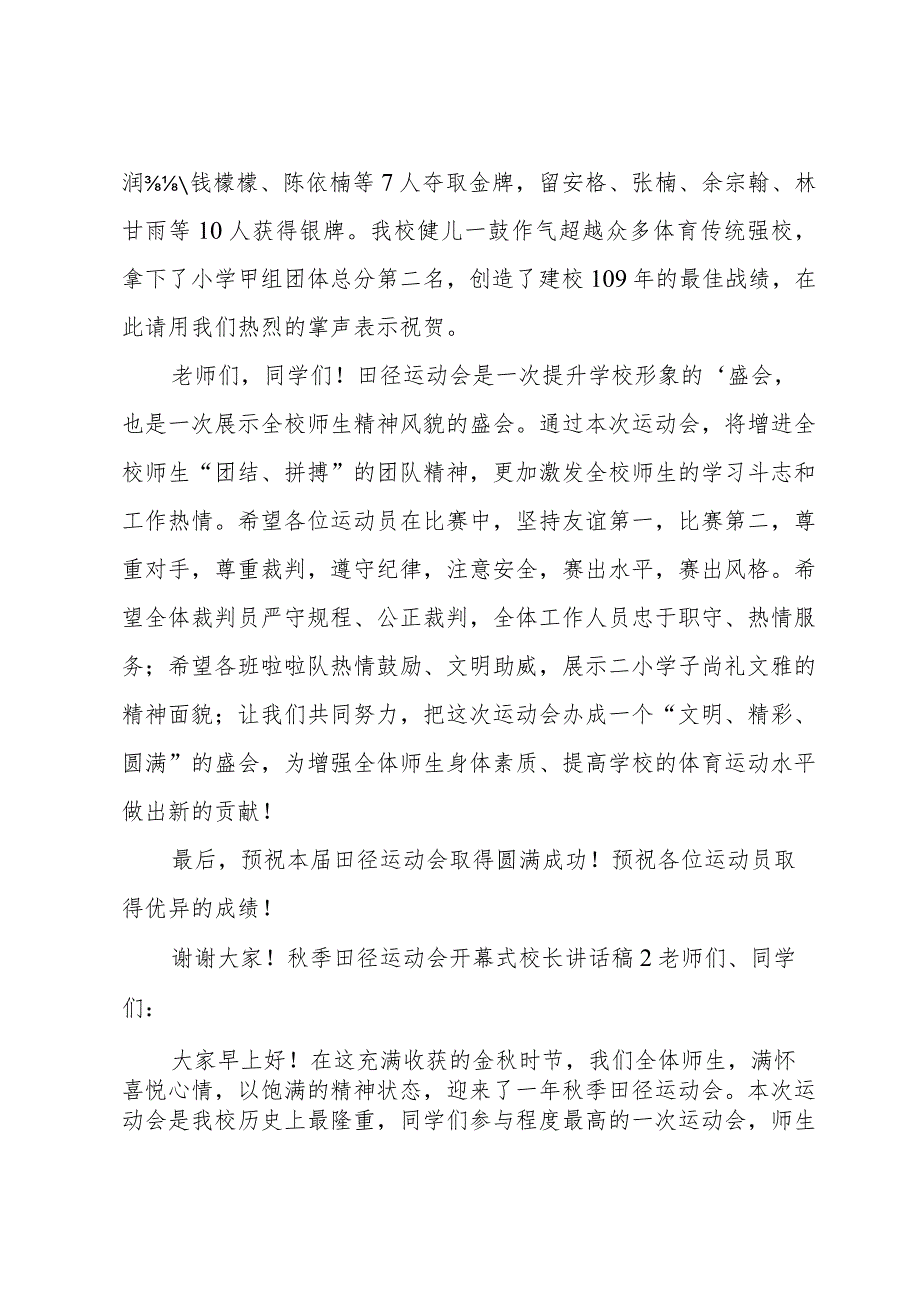 润⅜⅛\钱檬檬、陈依楠等 7 人夺取金牌，留安格、张楠、余宗翰、林
甘雨等 10 人获得银牌。我校健儿一鼓作气超越众多体育传统强校，
拿下了小学甲组团体总分第二名，创造了建校 109 年的最佳战绩，在
此请用我们热烈的掌声表示祝贺。
老师们，同学们！田径运动会是一次提升学校形象的‘盛会，
也是一次展示全校师生精神风貌的盛会。通过本次运动会，将增进全
校师生“团结、拼搏”的团队精神，更加激发全校师生的学习斗志和
工作热情。希望各位运动员在比赛中，坚持友谊第一，比赛第二，尊
重对手，尊重裁判，遵守纪律，注意安全，赛出水平，赛出风格。希
望全体裁判员严守规程、公正裁判，全体工作人员忠于职守、热情服
务；希望各班啦啦队热情鼓励、文明助威，展示二小学子尚礼文雅的
精神面貌；让我们共同努力，把这次运动会办成一个“文明、精彩、
圆满”的盛会，为增强全体师生身体素质、提高学校的体育运动水平
做出新的贡献！
最后，预祝本届田径运动会取得圆满成功！预祝各位运动员取
得优异的成绩！
谢谢大家！秋季田径运动会开幕式校长讲话稿 2 老师们、同学
们：
大家早上好！在这充满收获的金秋时节，我们全体师生，满怀
喜悦心情，以饱满的精神状态，迎来了一年秋季田径运动会。本次运
动会是我校历史上最隆重，同学们参与程度最高的一次运动会，师生